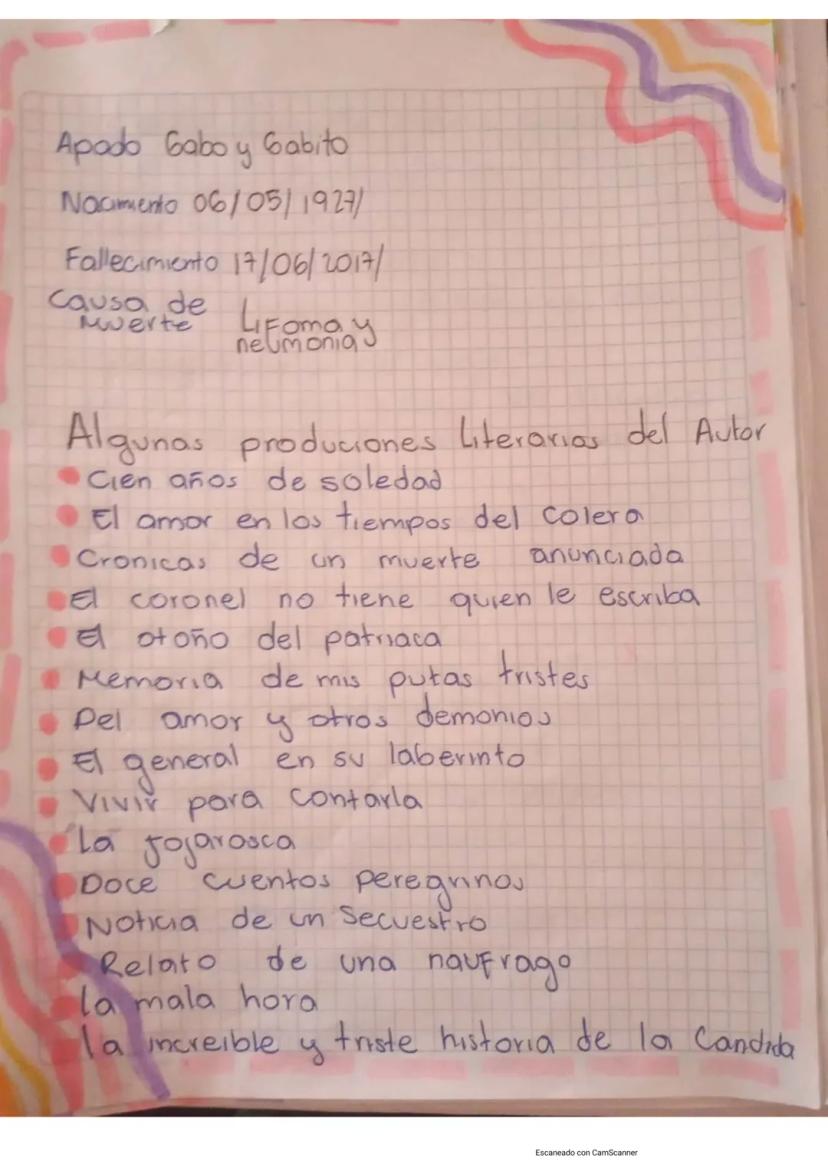 Apado Gabo y Gabito
Nacimiento 06/05/1927/
Fallecimiento 17/06/2017/
Causa de
Muerte Lifoma y
neumonia
Algunas produciones Literarias del Autor
Cien años de soledad
El amor en los tiempos del colera
Cronicas de un muerte anunciada
El coronel no tiene quien le escriba
El otoño del patriaca
Memoria de mis putas tristes
Del amor y otros demonios
El general en su laberinto
Vivir para contarla
La
Doce cuentos peregrinos
Noticia de un Secuestro
Relato de una naufrago
la mala hora
la increible y triste historia de la Candida
Escaneado con CamScanner